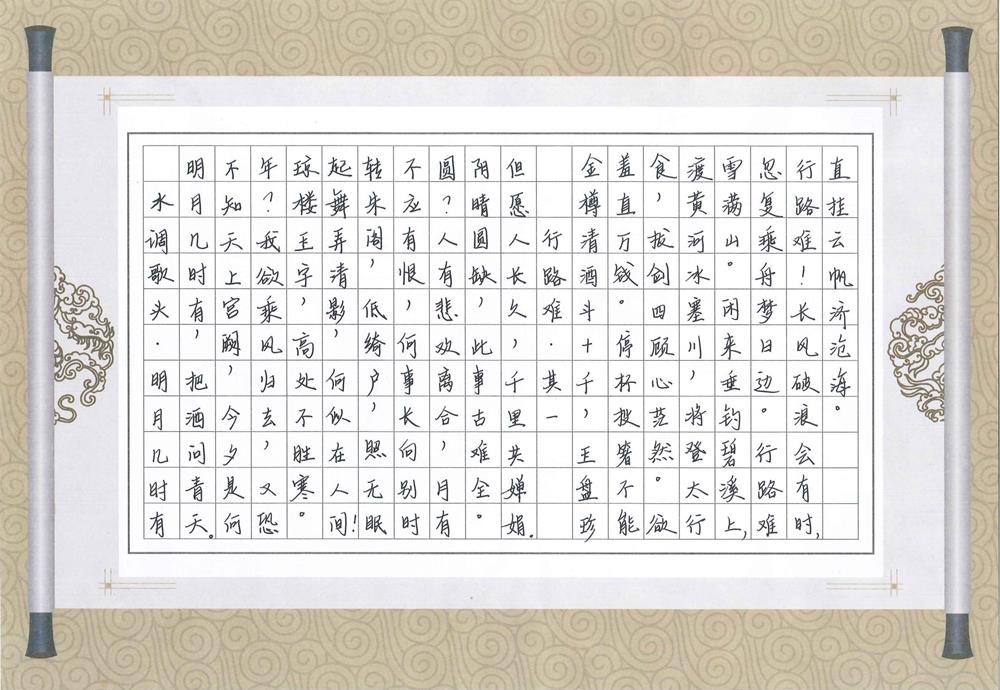 水调歌头·明月几时有
明月几时有，把酒问青天。
不知天上宫阙，今夕是何
年？我欲乘风归去，又恐
琼楼玉宇，高处不胜寒。
起舞弄清影，何似在人间！
转朱阁，低绮户，照无眠
不应有恨，何事长向别时
圆？人有悲欢离合，月有
阴晴圆缺，此事古难全。
但愿人长久，千里共婵娟.
行路难·其一
金樽清酒斗十千，玉盘珍
羞直万钱。停杯投箸不能
食，拔剑四顾心茫然。欲
渡黄河冰塞川，将登太行
雪满山。闲来垂钓碧溪上，
忽复乘舟梦日边。行路难
行路难！长风破浪会有时，
直挂云帆济沧海。